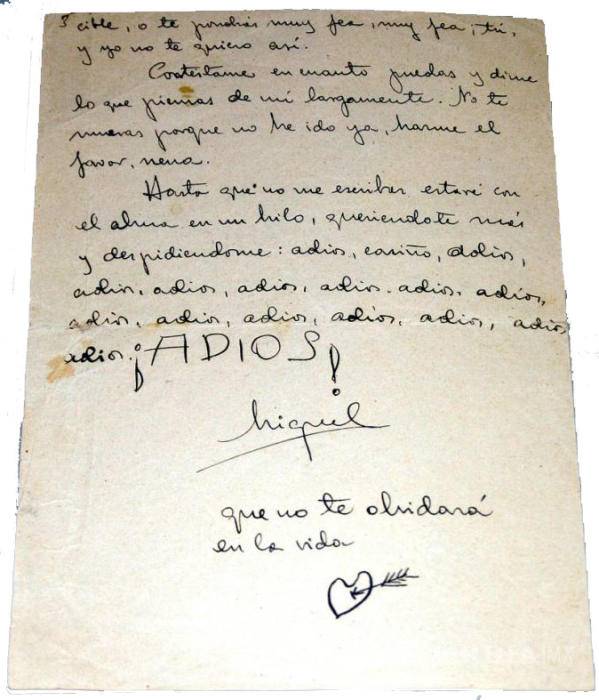 cible, o te pondrás muy fea, muy fea, tú,
y yo no te quiero así.
Contestame en cuanto puedas y dime
lo que piensas de mí largamente. No te
mueras porque no he ido ya, hazme el
favor, nena.
Hasta que no me escribes estaré con
el alma en un hilo, queriendote más
y despidiendome: adios, cariño, adios,
adios, adios, adios, adios. adios, adios,
adios, adios, adios, adios, adios, adios
adios. ¡ADIOS!
Miguel
que no te olvidará
en la vida